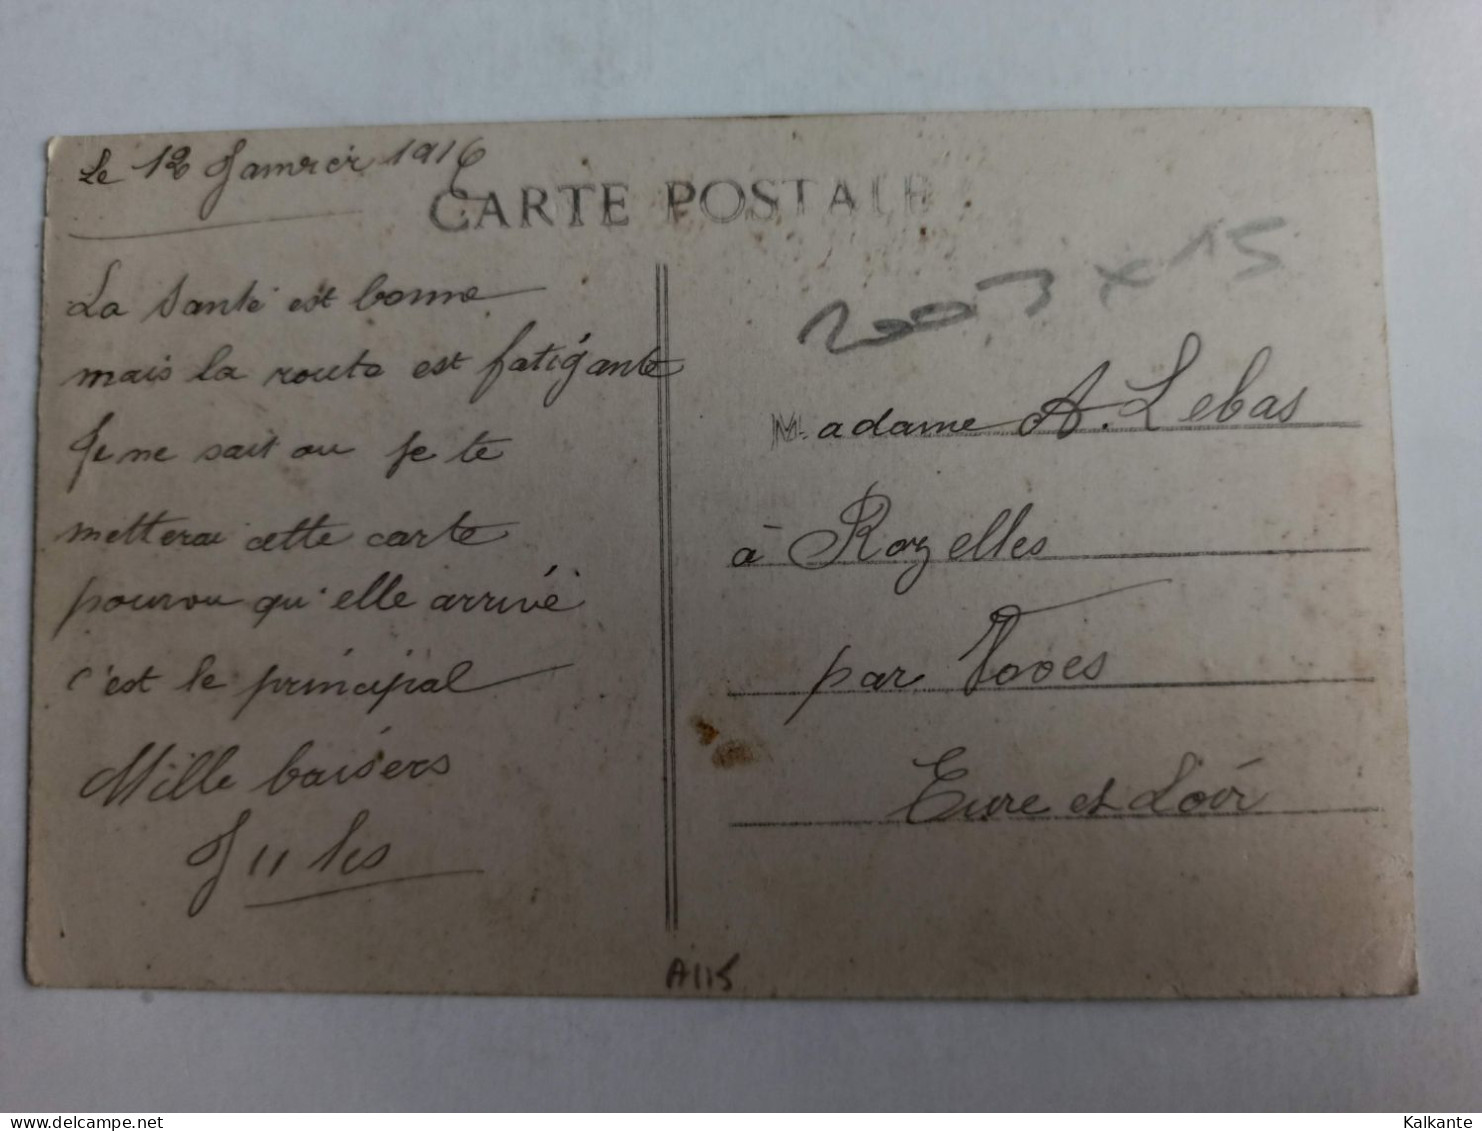 Le 12 Janvier 1916
CARTE POSTALE
La Santé est bonne
mais la route est fatigante
Je ne sait ou je te
metterai cette carte
pourvou qu'elle arrivé
c'est le principal
Mille baisers
Jules
2003 x 15
Madame A. Lebas
à Rozelles
par Voves
Eure et Loir
A115
Kalkante